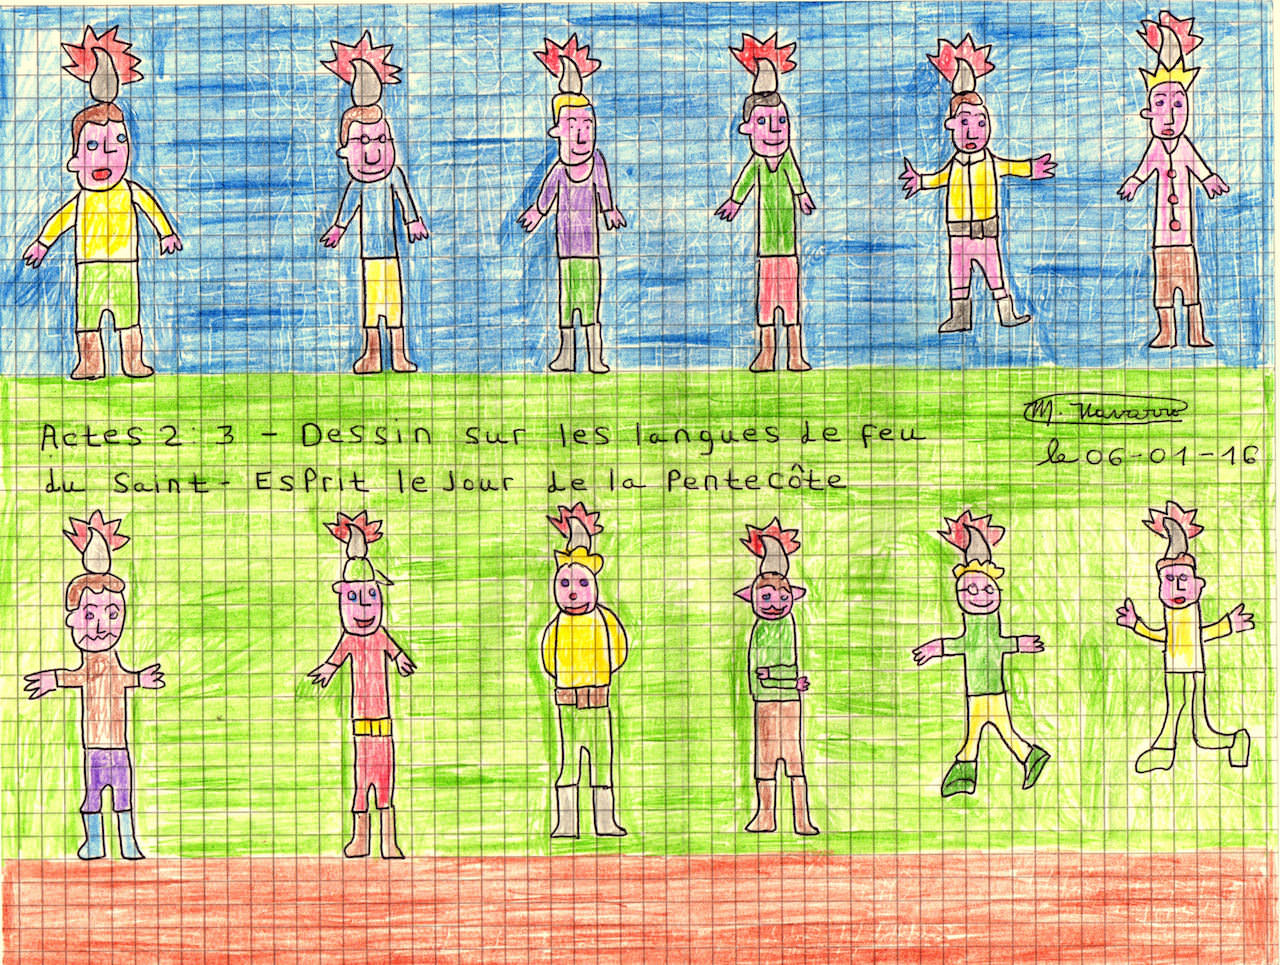 Actes 2:3 - Dessin sur les langues de feu
du Saint-Esprit le Jour de la Pentecôte
M. Navarro
le 06-01-16